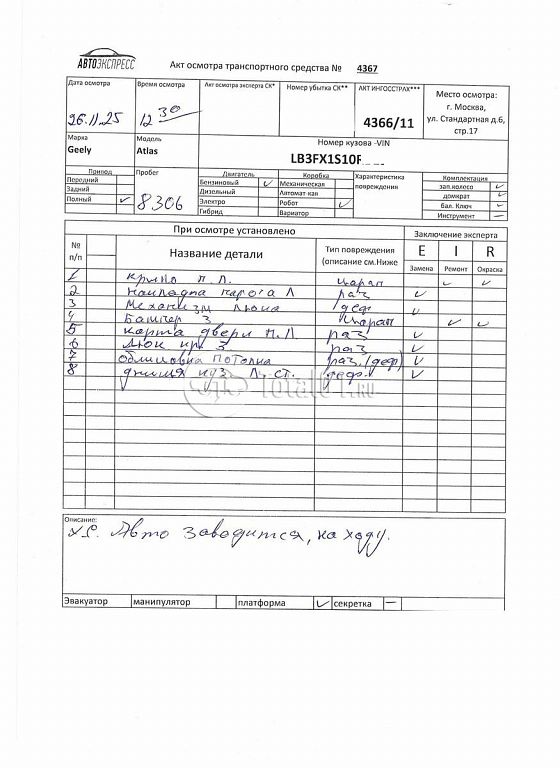 АВТОЭКСПРЕСС
Акт осмотра транспортного средства № 4367
Дата осмотра
26.11.25
Время осмотра
12 30
Акт осмотра эксперта СК*
Номер убытка СК**
АКТ ИНГОССТРАХ***
4366/11
Место осмотра:
г. Москва,
ул. Стандартная д.6,
стр.17
Марка
Geely
Модель
Atlas
Номер кузова -VIN
LB3FX1S10F
Привод
Передний
Задний
Полный ✓
Пробег
8306
Двигатель
Бензиновый ✓
Дизельный
Электро
Гибрид
Коробка
Механическая
Автомат кая
Робот ✓
Вариатор
Характеристика
повреждения
Комплектация
зап.колесо ✓
домкрат ✓
бал. Ключ ✓
Инструмент —
При осмотре установлено
Заключение эксперта
№ п/п
Название детали
Тип повреждения
(описание см.Ниже
E I R
Замена Ремонт Окраска
1 крыло п.л. царап ✓ ✓
2 накладка порога Л раз ✓
3 механизм люка деф ✓
4 Бампер З царап ✓ ✓
5 карта двери П.Л раз ✓
6 Люк кр. З раз ✓
7 обшивка потолка раз.(деф) ✓
8 днища куз Л. ст. деф. ✓
Total01.RU
Описание:
Х.С. Авто заводится, на ходу.
Эвакуатор манипулятор платформа ✓ секретка —